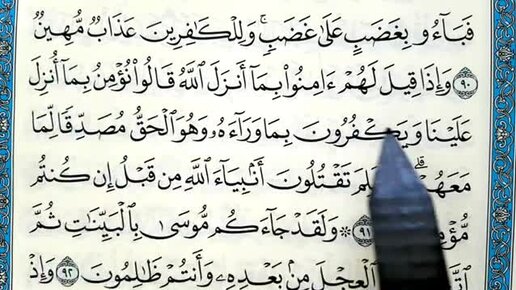 فَبَآءُو بِغَضَبٍ عَلَىٰ غَضَبٍ ۚ وَلِلْكَـٰفِرِينَ عَذَابٌ مُّهِينٌ
٩٠ وَإِذَا قِيلَ لَهُمْ ءَامِنُوا۟ بِمَآ أَنزَلَ ٱللَّهُ قَالُوا۟ نُؤْمِنُ بِمَآ أُنزِلَ
عَلَيْنَا وَيَكْفُرُونَ بِمَا وَرَآءَهُۥ وَهُوَ ٱلْحَقُّ مُصَدِّقًا لِّمَا
مَعَهُمْ ۗ تَقْتُلُونَ أَنۢبِيَآءَ ٱللَّهِ مِن قَبْلُ إِن كُنتُم
٩١ ۞ وَلَقَدْ جَآءَكُم مُّوسَىٰ بِٱلْبَيِّنَـٰتِ ثُمَّ
ٱلْعِجْلَ مِنۢ بَعْدِهِۦ وَأَنتُمْ ظَـٰلِمُونَ ٩٢ وَإِذْ